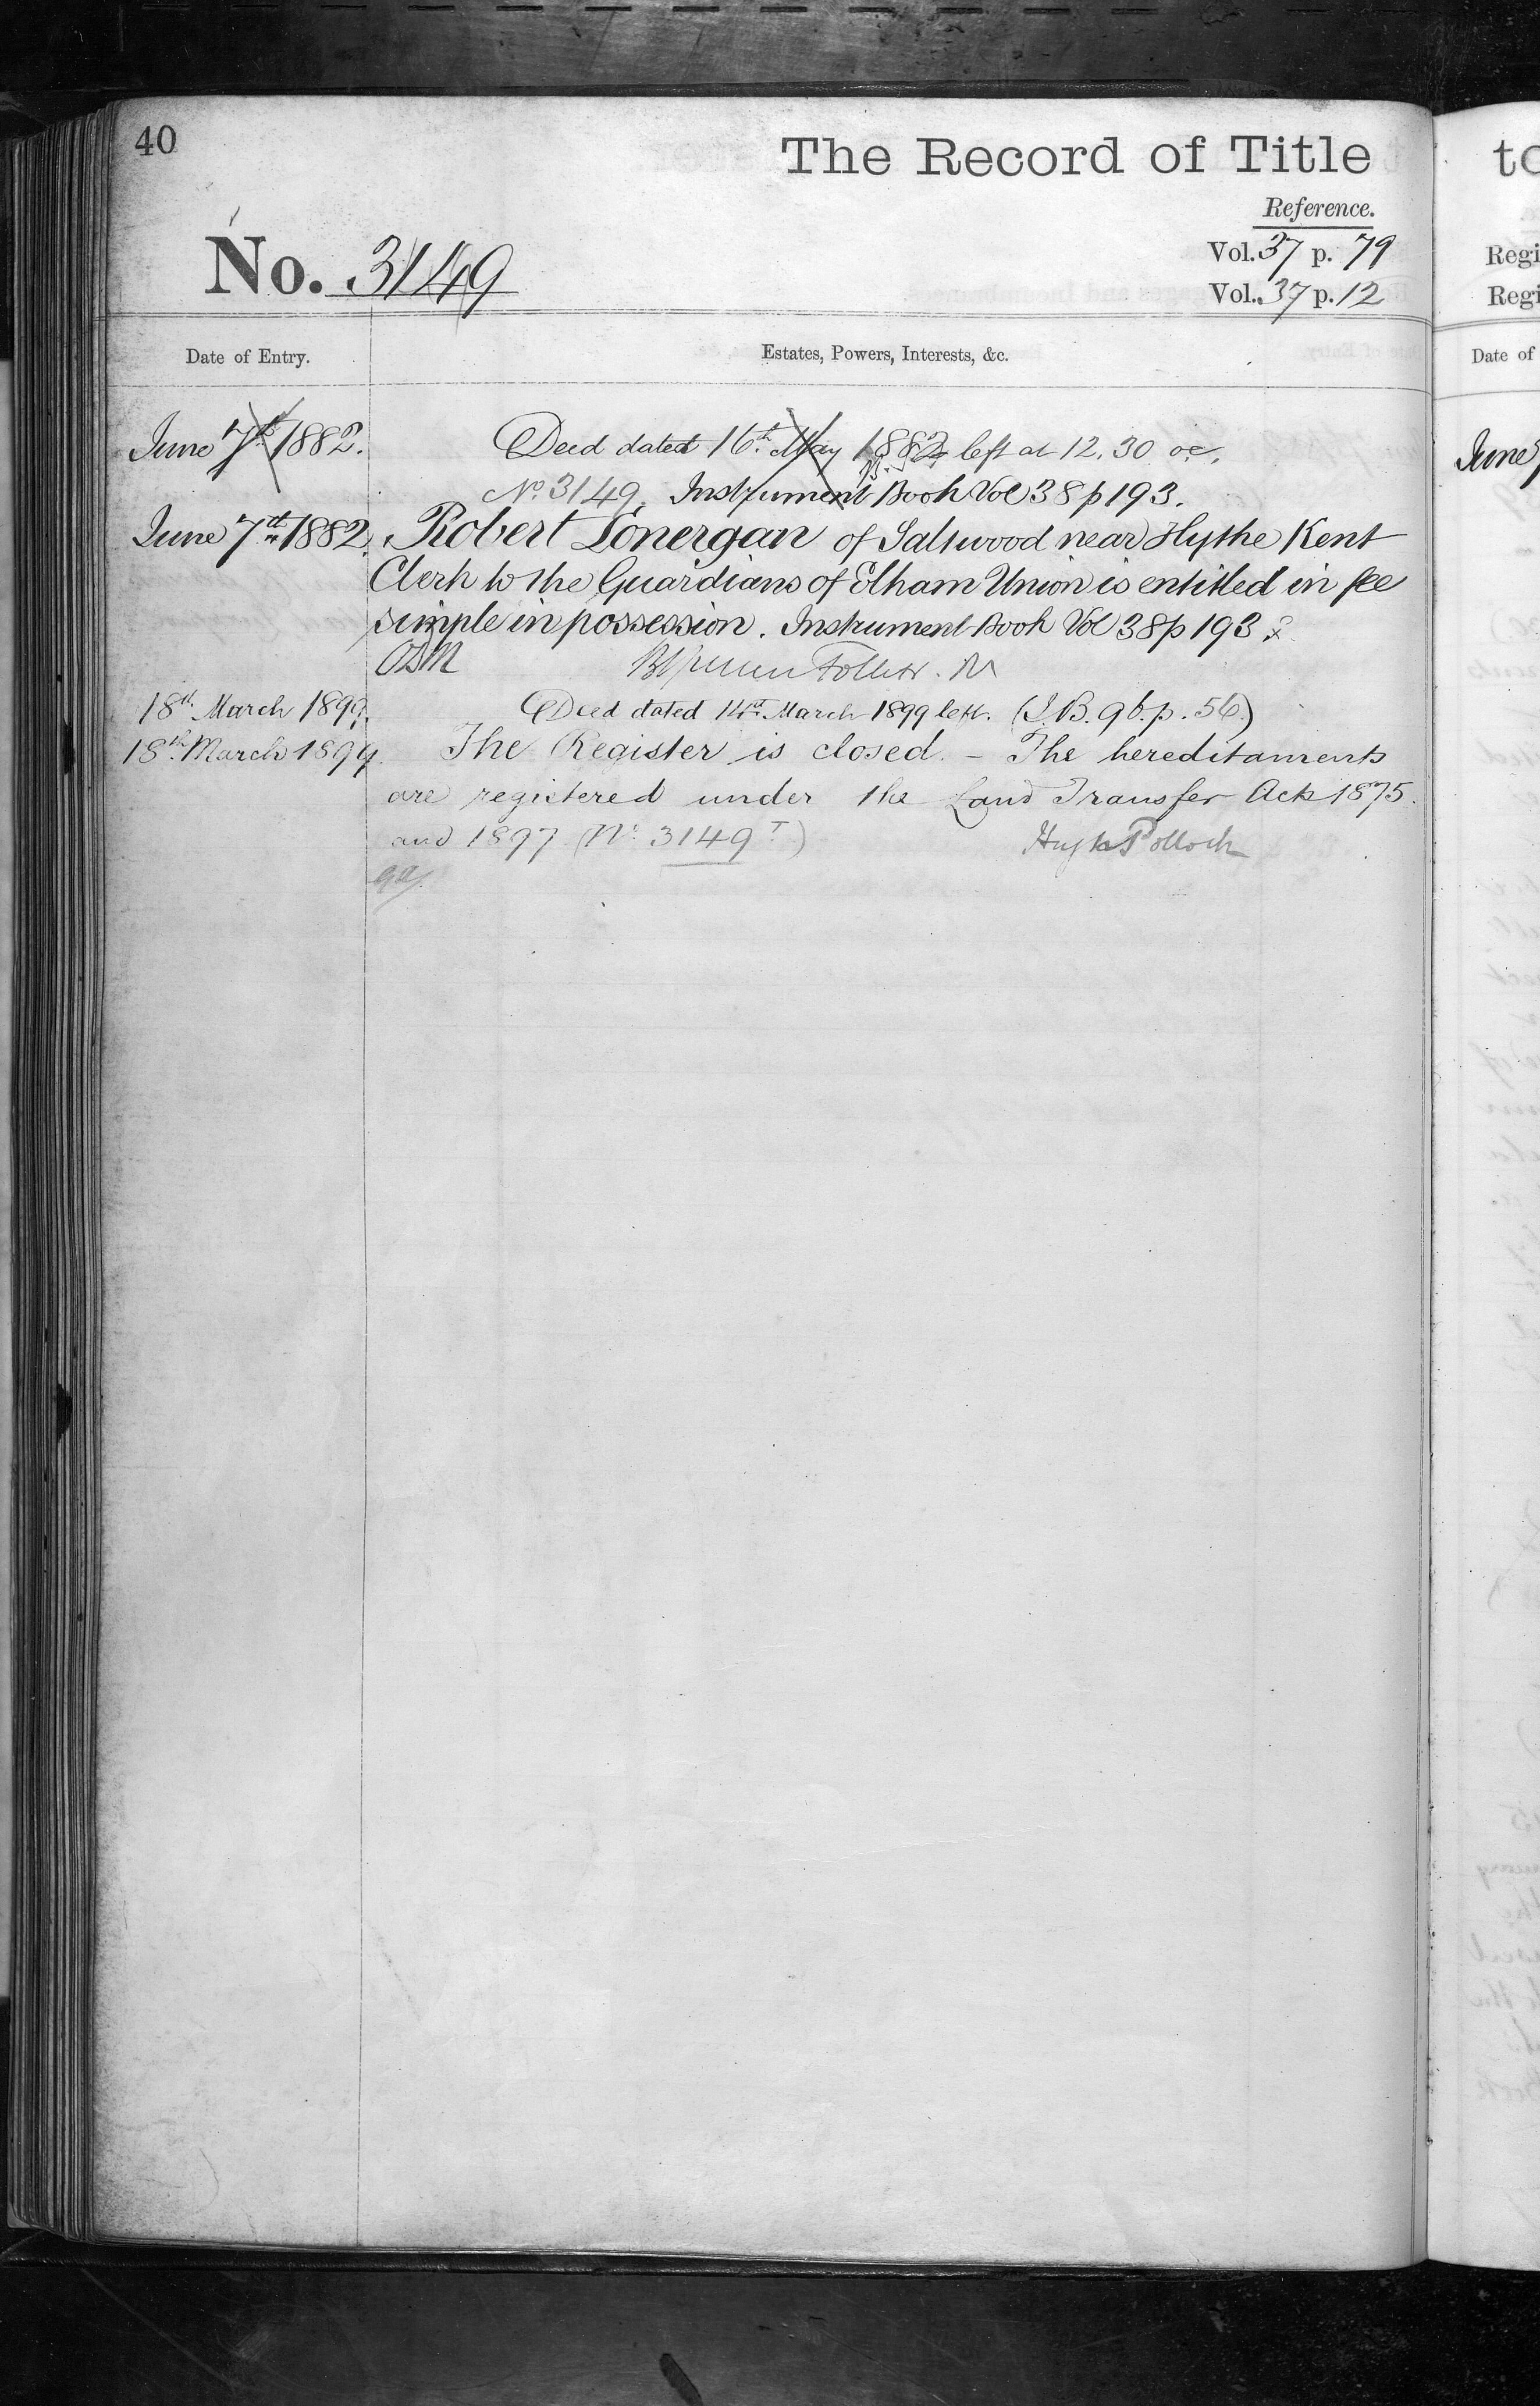 40
The Record of Title
Reference.
No. 3149
Vol. 37 p. 79
Vol. 37 p. 12
Date of Entry.
Estates, Powers, Interests, &c.
June 7th 1882.
Deed dated 16th May 1882 left at 12.30 oc.
No. 3149. Instrument Book Vol 38 p 193.
June 7th 1882.
Robert Lonergan of Saltwood near Hythe Kent
Clerk to the Guardians of Elham Union is entitled in fee
simple in possession. Instrument Book Vol 38 p 193
18th March 1899.
Deed dated 14th March 1899 left. (I.B. 96. p. 56.)
18th March 1899.
The Register is closed. – The hereditaments
are registered under the Land Transfer Acts 1875
and 1897 (No. 3149 T)
Hugh Pollock
to
Regi
Regi
Date of
June